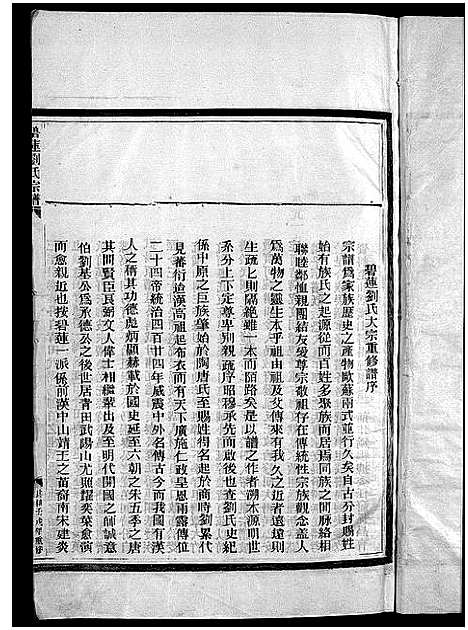 碧蓮劉氏大宗重修譜序
宗譜爲家族歷史之產物歐蘇兩式並行久矣自古分封賜姓
始有族氏之起源從而百姓多聚族而居焉同族之間脈絡相
聯睦鄰恤親團結友愛尊宗敬祖存在傳統性宗族觀念蓋人
爲萬物之靈生本乎祖由及其傳來有我久之近者遠遠則
生疏上則隔絕雖一本而陌路矣是以譜之作者溯木源明世
系分上下定尊卑別親疏序昭穆承先而啟後也查劉氏史紀
係中原之巨族肇始於陶唐氏至賜姓得名起於商時劉累代
見蕃衍迨漢高祖起布衣而有天下廣施仁政皇恩雨露傳位
二十四帝統治四百廿四年威震中外名傳古今而我國有漢
人之稱其功德處炳顯赫載於國史延至六朝之朱五季之唐
其間賢臣良劉文人偉士相繼輩出及至明代開國之師誠意
伯劉基公爲承德公之後世居青田武陽山尤照耀奕葉愈演
而愈親近也按碧蓮一派係前漢中山靖王之苗裔南宋建炎
碧蓮劉氏宗譜